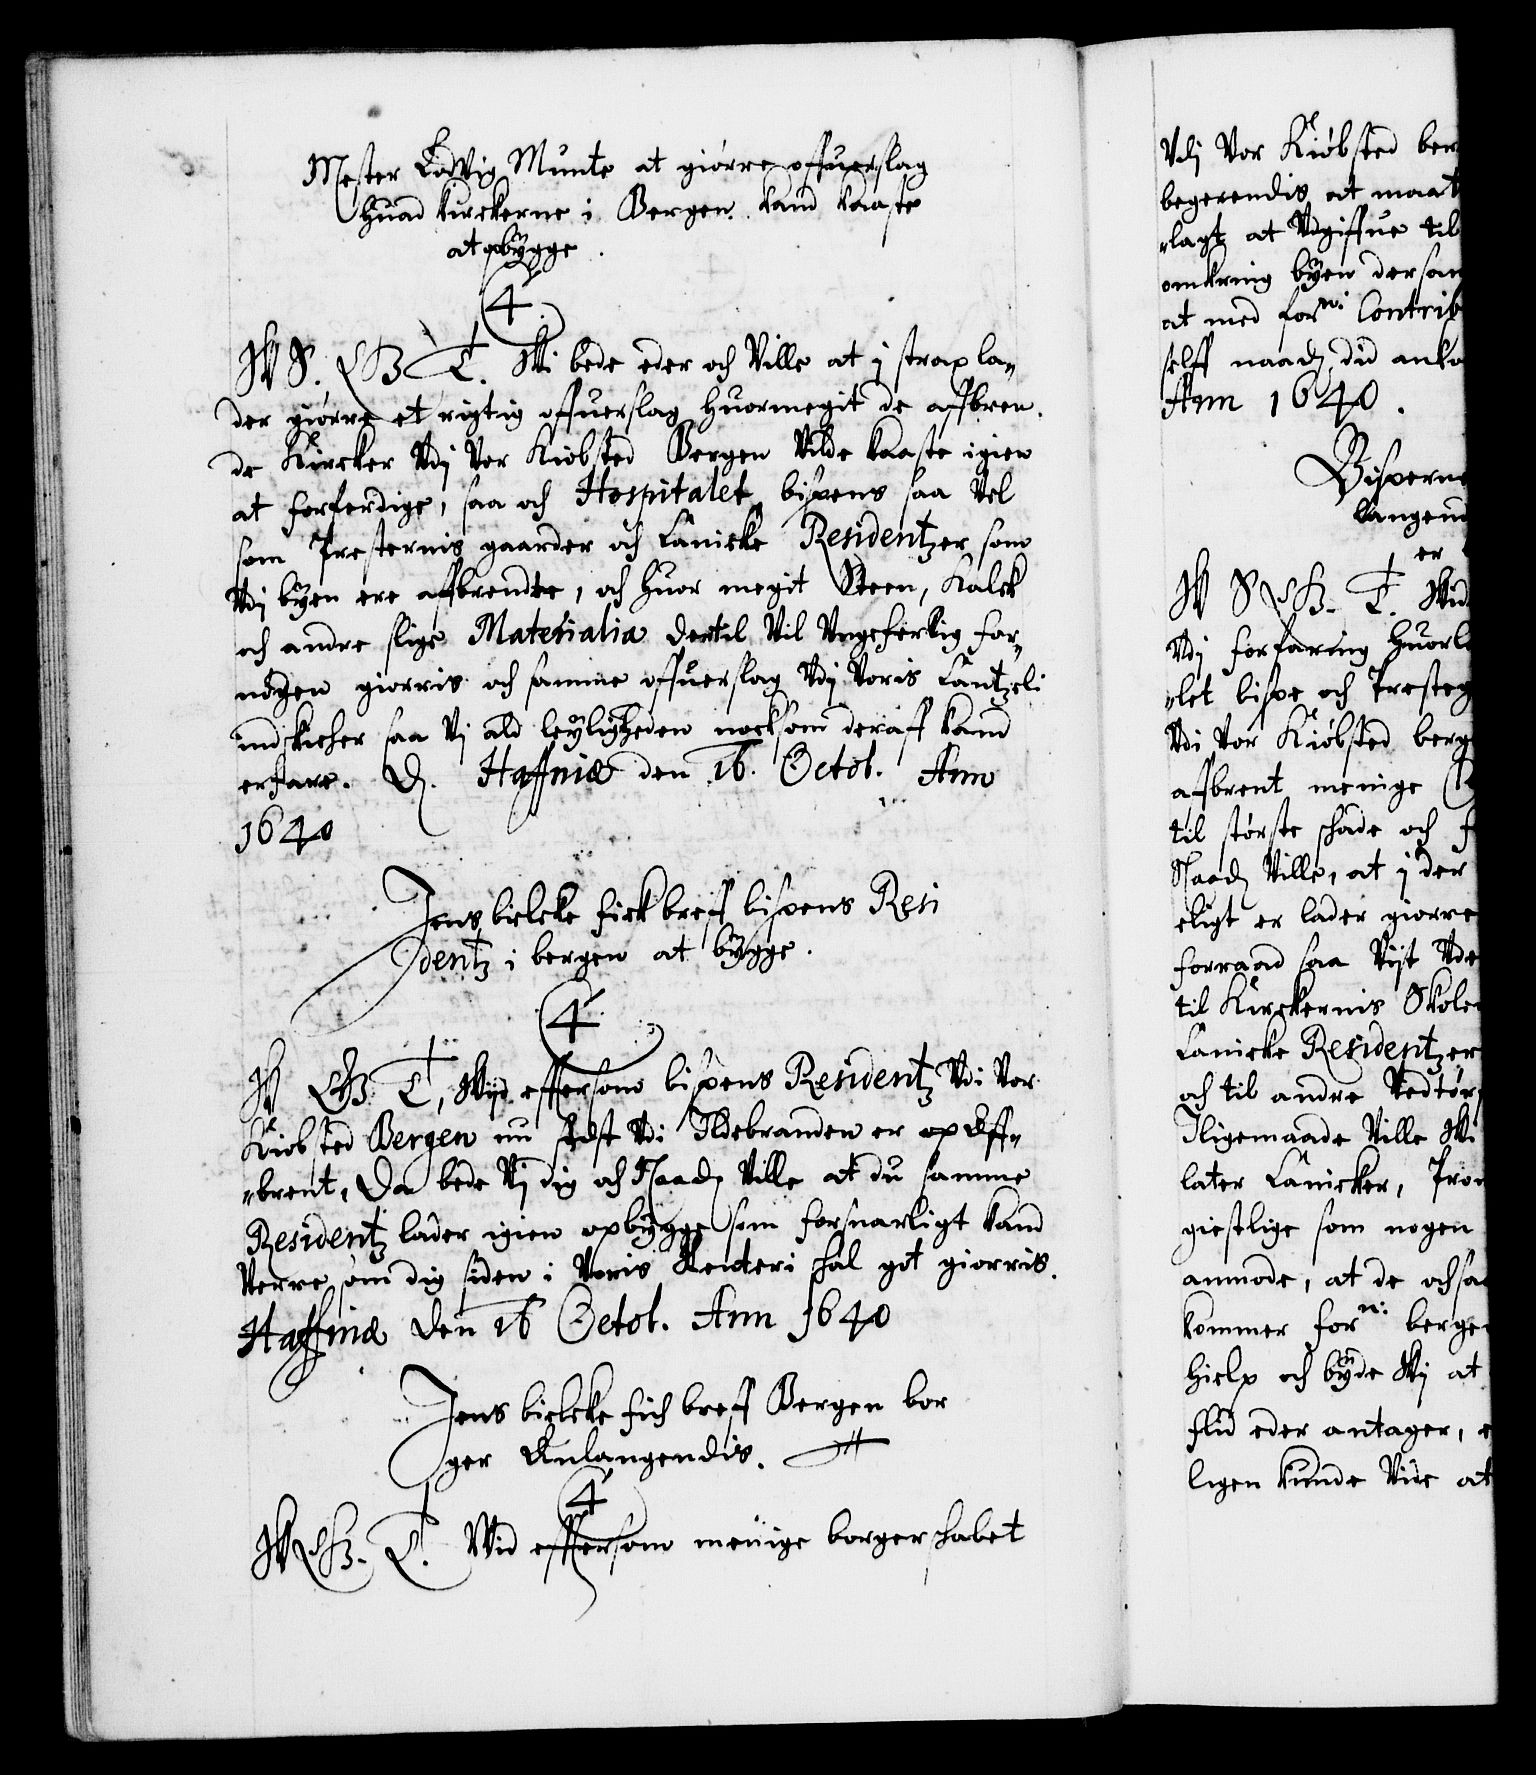 Mester Lodvig Munte at giørre offuerslag
Huad kirckerne i Bergen kand kaaste
at opbÿgge.
4
W S. G B T. Wi bede eder och Ville at j strax la„
der giørre et rigtig offuerslag Huormegit de affbren.
de Kircker Vdj Vor Kiøbsted Bergen Vilde kaaste igien
at forferdige, saa och Hospitalet, bispens saa Vel
som Presternis gaarder och Canicke Residentzer, som
Vdj byen ere affbrendte, och Huor megit Steen, Kalck
och andre slige Materialia dertil Vil Vngeferlig for„
nøgen giorris och samme offuerslag Vdj Voris Cantzeli
indskicher saa Vj ald leyligheden nocksom deraff kand
erfare. D. Haffniæ den 16. Octob. Ann
1640
Jens bielcke fick breff bispens Resi
dentz i bergen at bÿgge.
4
W G B T, Wiid effersom bispens Residentz Vdi Vor
Kiøbsted Bergen nu sidst Vdi Ildebranden er op aff„
„brent, Da bede Vj dig och Naad. Ville at du samme
Residentz lader igien opbÿgge som forsuarligt kand
Verre, som dig siden i Voris Renteri skal got giorris.
Haffniæ den 16 Octob. Ann 1640
Jens bielcke fich breff Bergen bor
ger Anlangendis.
4
W G B. T. Wid effersom menige borgerskabet
Vdj Vor Kiøbsted ber
begerendis at maat
„lagt at Vdgiffue til
omkring bÿen dersam
at med forn: Contrib
selff naad, du anko
Ann 1640.
Bisperne
langend
er
W S G B. T. Wid
Vdj forfaring Huorl
„let bispe och Presteg
Vdi Vor Kiøbsted berg
afbrent menige
til størte schade och f
Naad. Ville, at j der
eligt er lader giorre
forraad saa Vist Vde
til Kirckernis Skole
Canicke Residentzer
och til andre Vedtør
Iligemaade Ville Wi
later Canicker, Prou
giestlige som nogen
anmode, at de ochsaa
kommer forn: berge
Hielp och bÿde Wj at
flid eder antager, e
ligen kunde Vide at